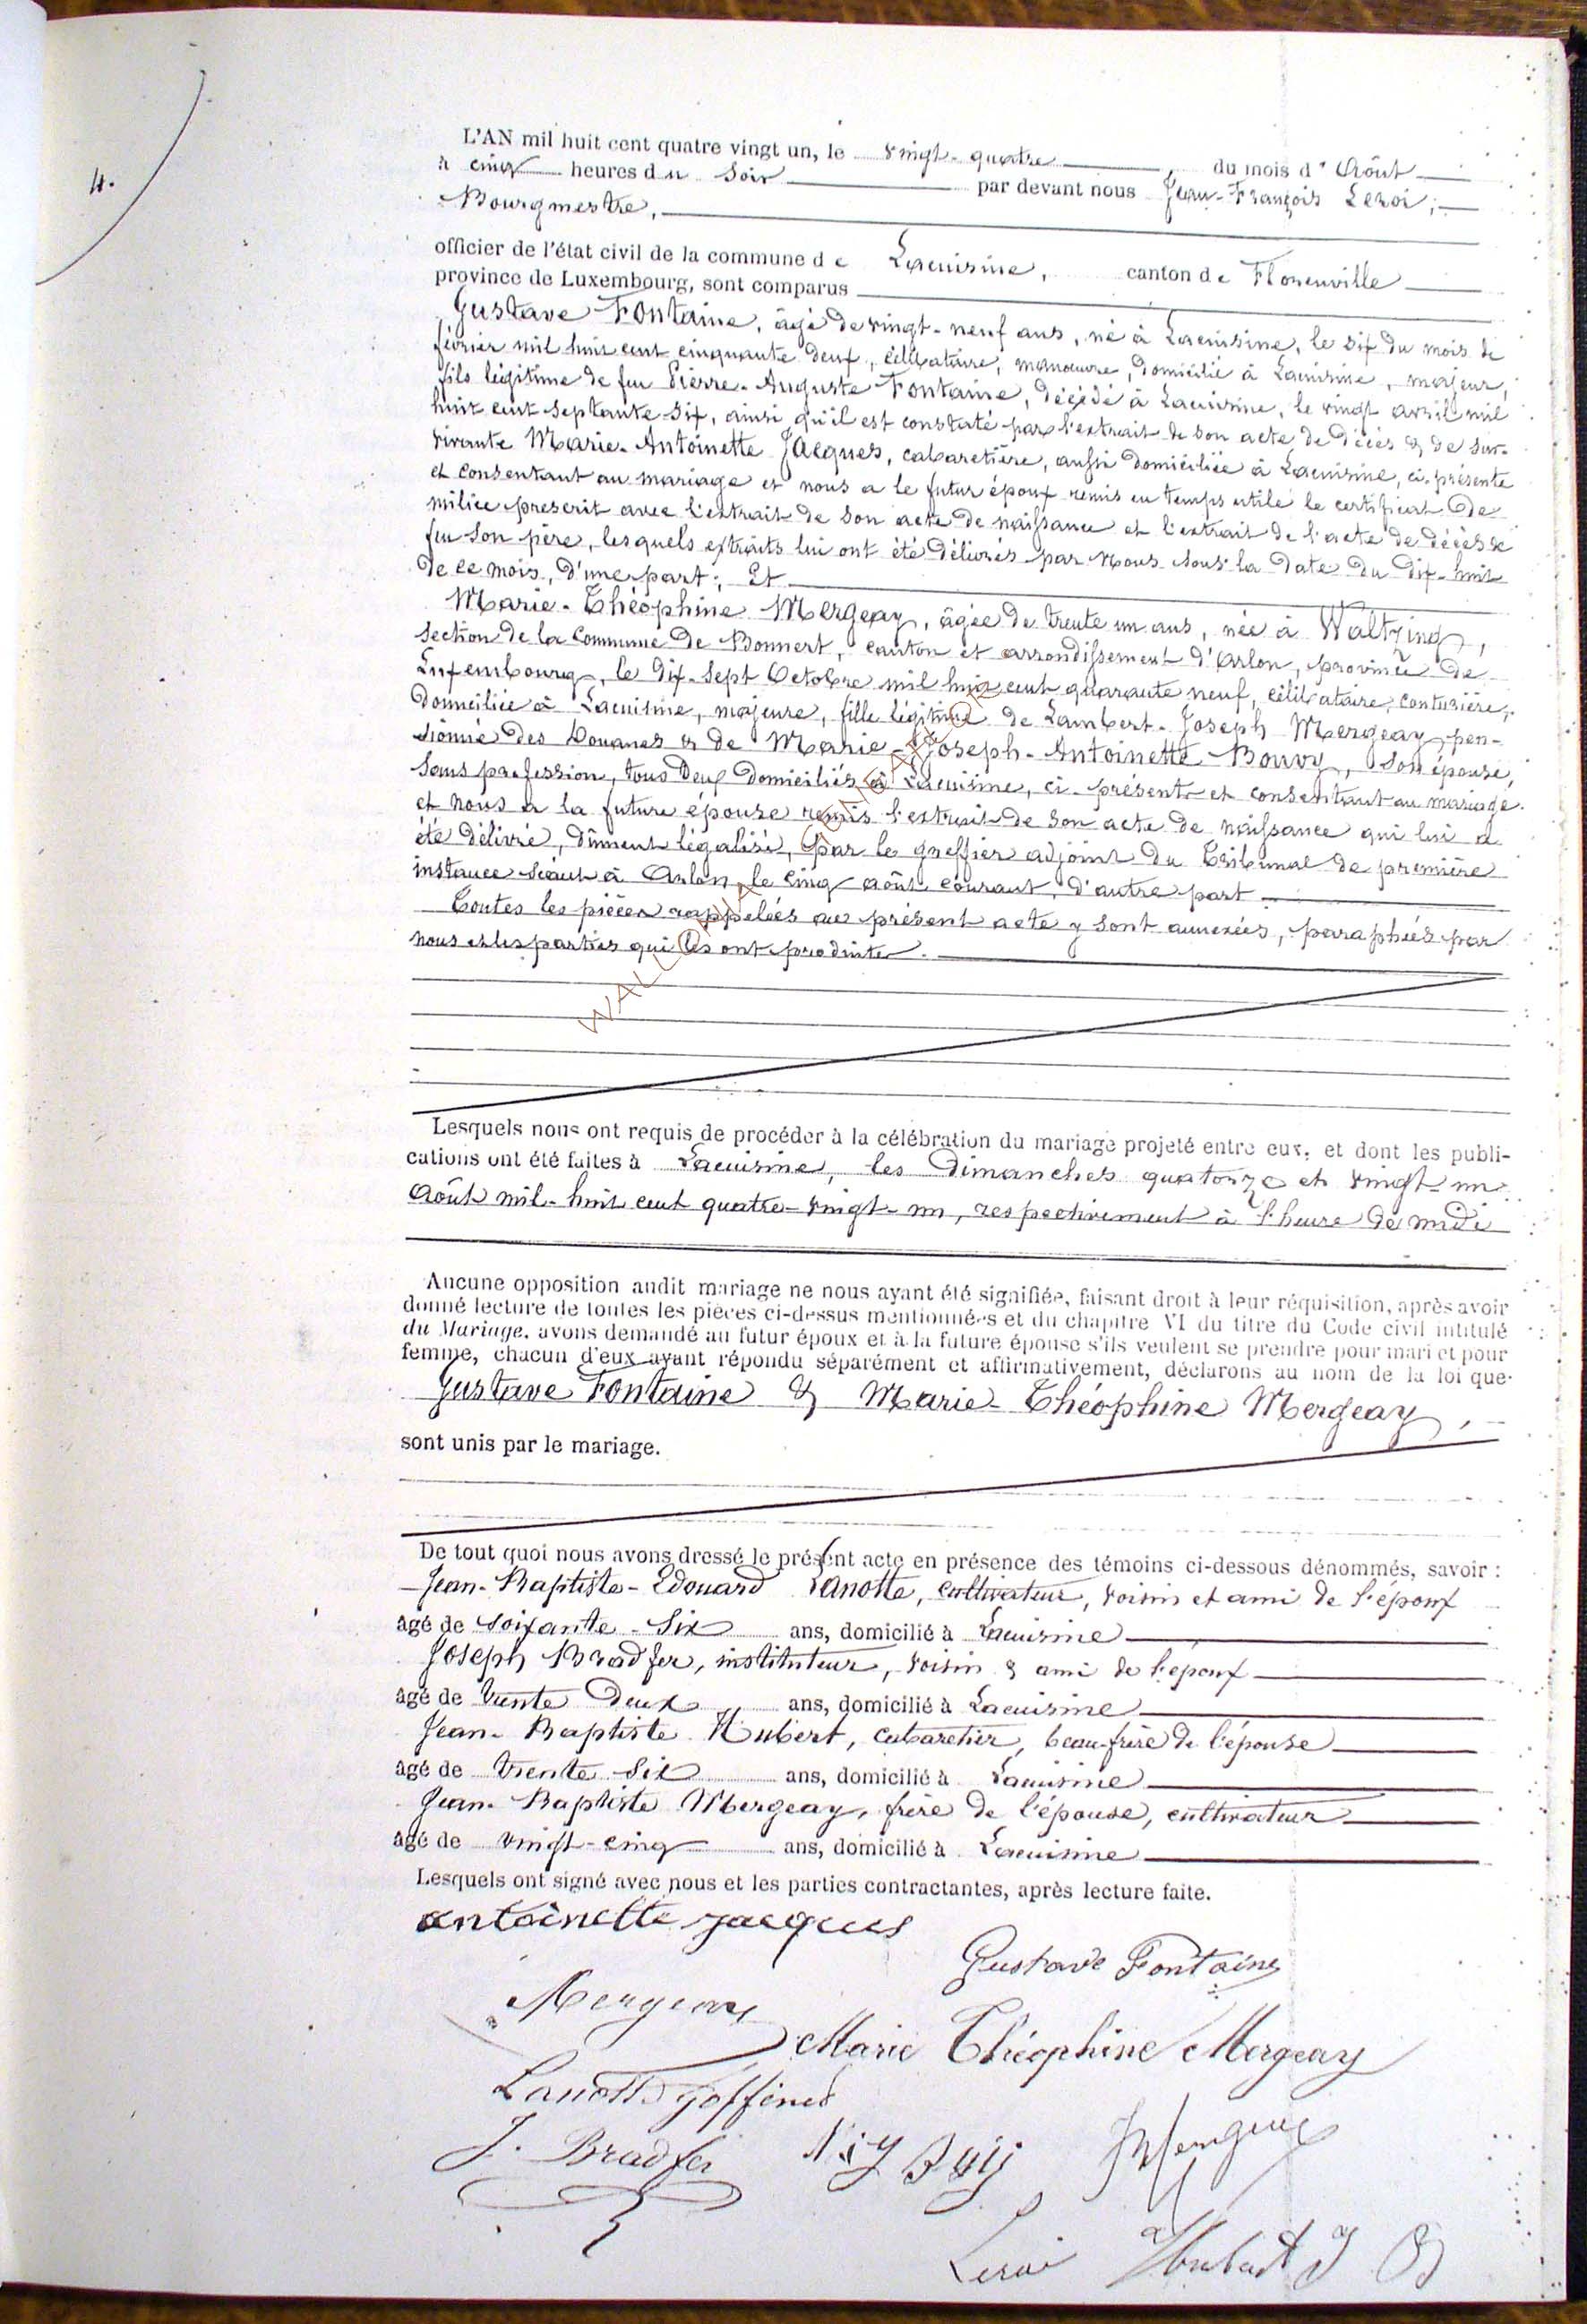 4.
L'AN mil huit cent quatre vingt un, le vingt-quatre, du mois d'Août
à cinq heures du soir par devant nous Jean-François Leroi,
Bourgmestre,
officier de l'état civil de la commune de Lacuisine, canton de Florenville
province de Luxembourg, sont comparus
Gustave Fontaine, âgé de vingt-neuf ans, né à Lacuisine, le six du mois de
février mil huit cent cinquante deux, célibataire, manœuvre, domicilié à Lacuisine, majeur,
fils légitime de feu Pierre-Auguste Fontaine, décédé à Lacuisine, le vingt avril mil
huit cent septante six, ainsi qu'il est constaté par l'extrait de son acte de décès & de sur-
vivante Marie-Antoinette Jacques, cabaretière, aussi domiciliée à Lacuisine, ci-présente
et consentant au mariage et nous a le futur époux remis en temps utile le certificat de
milice prescrit avec l'extrait de son acte de naissance et l'extrait de l'acte de décès de
feu son père, lesquels extraits lui ont été délivrés par nous sous la date du dix-huit
de ce mois, d'une part; Et
Marie-Théophine Mergeay, âgée de trente un ans, née à Waltzing,
section de la commune de Bonnert, canton et arrondissement d'Arlon, province de
Luxembourg, le dix-sept Octobre mil huit cent quarante neuf, célibataire, couturière,
domiciliée à Lacuisine, majeure, fille légitime de Lambert-Joseph Mergeay, pen-
sionné des Douanes & de Marie-Joseph-Antoinette Bouvy, son épouse,
sans profession, tous deux domiciliés à Lacuisine, ci-présents et consentant au mariage.
et nous a la future épouse remis l'extrait de son acte de naissance qui lui a
été délivré, dûment légalisé, par le greffier adjoint du Tribunal de première
instance séant à Arlon, le cinq août courant, d'autre part
Toutes les pièces rappelées au présent acte y sont annexées, paraphées par
nous et les parties qui les ont produites.
Lesquels nous ont requis de procéder à la célébration du mariage projeté entre eux, et dont les publi-
cations ont été faites à Lacuisine, les Dimanches quatorze et vingt-un
Août mil-huit cent quatre-vingt-un, respectivement à l'heure de midi
Aucune opposition audit mariage ne nous ayant été signifiée, faisant droit à leur réquisition, après avoir
donné lecture de toutes les pièces ci-dessus mentionnées et du chapitre VI du titre du Code civil intitulé
du Mariage, avons demandé au futur époux et à la future épouse s'ils veulent se prendre pour mari et pour
femme, chacun d'eux ayant répondu séparément et affirmativement, déclarons au nom de la loi que
Gustave Fontaine & Marie-Théophine Mergeay,
sont unis par le mariage.
De tout quoi nous avons dressé le présent acte en présence des témoins ci-dessous dénommés, savoir :
Jean-Baptiste-Edouard Lanotte, cultivateur, voisin et ami de l'époux
âgé de soixante-six ans, domicilié à Lacuisine
Joseph Bradfer, instituteur, voisin & ami de l'époux
âgé de trente deux ans, domicilié à Lacuisine
Jean-Baptiste Hubert, cabaretier, beau-frère de l'épouse
âgé de trente six ans, domicilié à Lacuisine
Jean-Baptiste Mergeay, frère de l'épouse, cultivateur
âgé de vingt-cinq ans, domicilié à Lacuisine
Lesquels ont signé avec nous et les parties contractantes, après lecture faite.
antoinette jacques
Gustave Fontaine
Mergeay
Marie Théophine Mergeay
Lanotte Goffinet
J. Bradfer
JMergeay
Leroi
Hubert J B